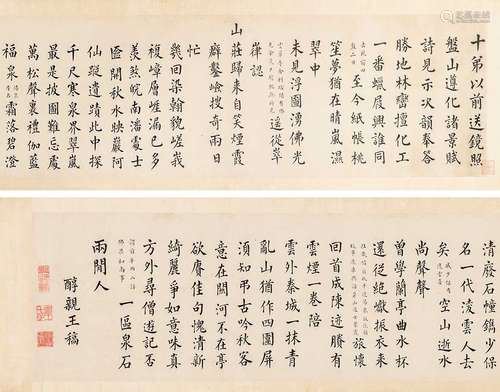 十弟以前送鏡照
盤山遵化諸景賦
詩見示次韻奉答
勝地林巒擅化工
一番蠟屐興誰同
至今紙帳桃
笙夢猶在晴嵐濕
翠中
未見浮圖湧佛光
遥從翠
嶂認
山莊歸來自笑煙霞
癖鑿嶮搜奇兩日
忙
幾回染翰貌嵯峩
複嶂層崖漏已多
羨煞皖南潘處士
匳開秋水映巖阿
仙蹤遺蹟此中探
千尺寒泉界翠嵐
最是披圖難忘處
萬松聲裏禮伽藍
福泉 霜落碧澄
清廢石幢鐫少保
名一代淩雲人去
矣 空山逝水
尚聲聲
曾學蘭亭曲水杯
還從絕巘振衣來
旅懷
回首成陳迹賸有
雲煙一卷陪
雲外秦城一抹青
亂山猶作四圍屏
須知弔古吟秋客
意在關河不在亭
欲賡佳句愧清新
綺麗爭如意味真
方外尋僧遊記否
一區泉石
兩閒人
醇親王稿